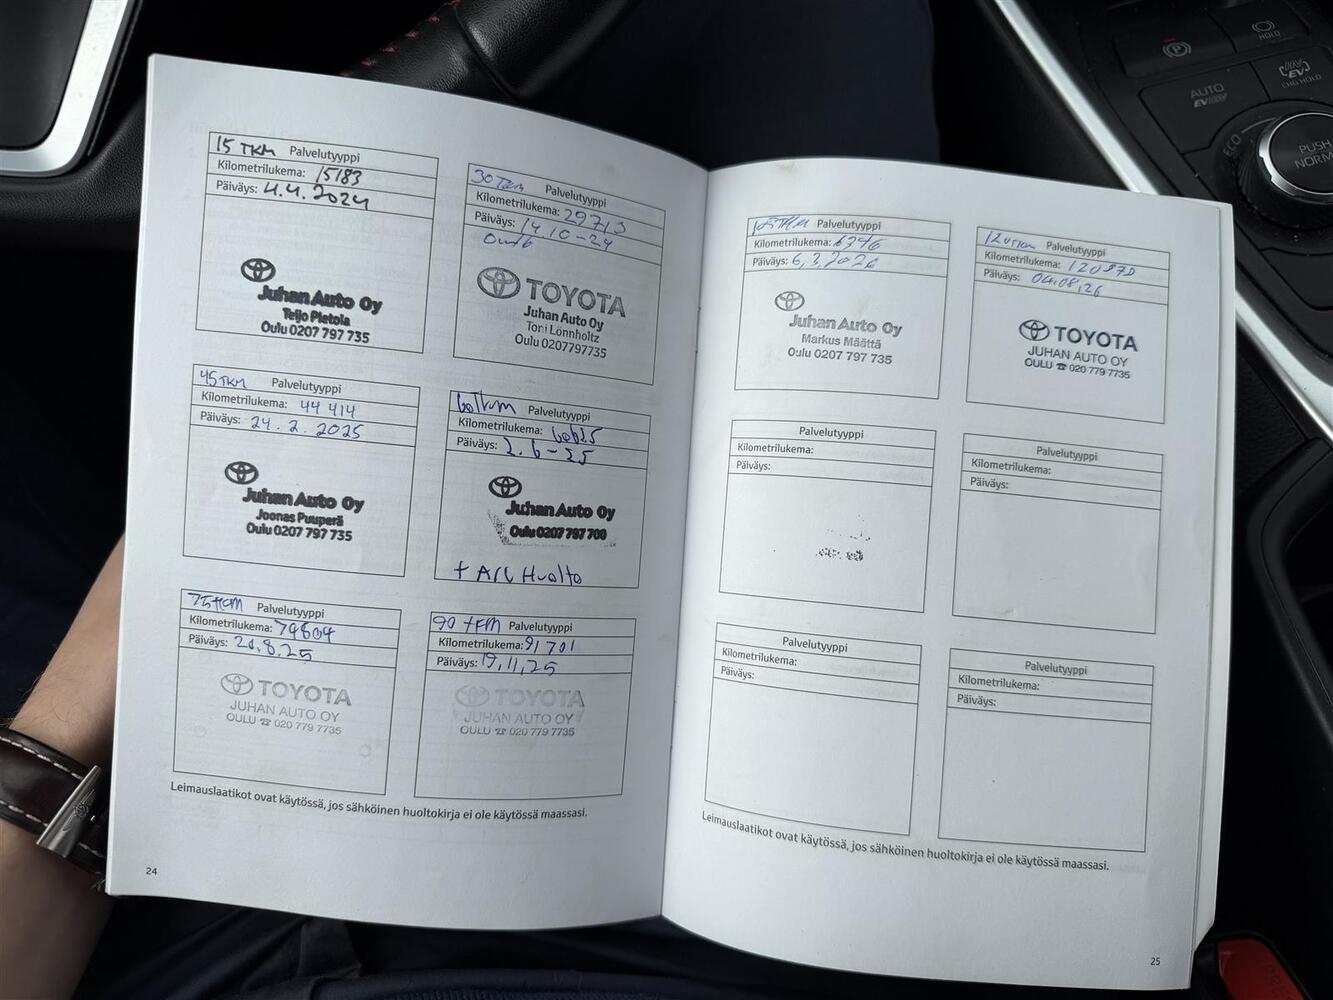 15 TKM Palvelutyyppi
Kilometrilukema: 15183
Päiväys: 4.4.2024
Juhan Auto Oy
Teijo Pietola
Oulu 0207 797 735
30 TKM Palvelutyyppi
Kilometrilukema: 29713
Päiväys: 14.10-24
TOYOTA
Juhan Auto Oy
Toni Lönnholtz
Oulu 0207797735
45 TKM Palvelutyyppi
Kilometrilukema: 44 414
Päiväys: 24.2.2025
Juhan Auto Oy
Joonas Puuperä
Oulu 0207 797 735
60 Tkm Palvelutyyppi
Kilometrilukema:
Päiväys: 2.6-25
Juhan Auto Oy
Oulu 0207 797 700
+ A/C Huolto
75 TKM Palvelutyyppi
Kilometrilukema: 74604
Päiväys: 20.8.25
TOYOTA
JUHAN AUTO OY
OULU ☎ 020 779 7735
90 TKM Palvelutyyppi
Kilometrilukema: 91701
Päiväys: 19.11.25
TOYOTA
JUHAN AUTO OY
OULU ☎ 020 779 7735
Leimauslaatikot ovat käytössä, jos sähköinen huoltokirja ei ole käytössä maassasi.
24
105 TKM Palvelutyyppi
Kilometrilukema:
Päiväys: 6.3.2026
Juhan Auto Oy
Markus Määttä
Oulu 0207 797 735
120 TKM Palvelutyyppi
Kilometrilukema: 120870
Päiväys: 04.08.26
TOYOTA
JUHAN AUTO OY
OULU ☎ 020 779 7735
Palvelutyyppi
Kilometrilukema:
Päiväys:
Palvelutyyppi
Kilometrilukema:
Päiväys:
Palvelutyyppi
Kilometrilukema:
Päiväys:
Palvelutyyppi
Kilometrilukema:
Päiväys:
Leimauslaatikot ovat käytössä, jos sähköinen huoltokirja ei ole käytössä maassasi.
25
HOLD
AUTO
EV
EV
CHG HOLD
ECO
PUSH